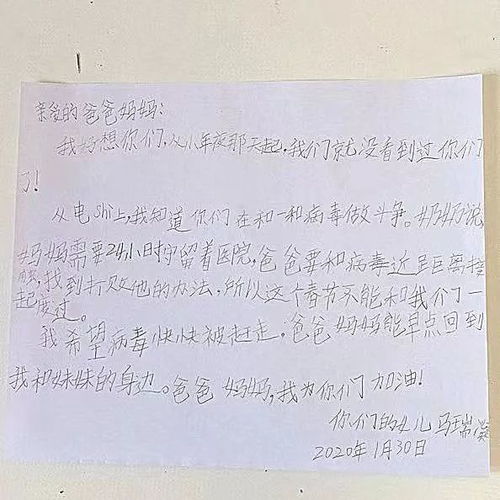 亲爱的爸爸妈妈:
我好想你们,从小年夜那天起,我们就没看到过你们
了!
从电shi上,我知道你们在和一种病毒做斗争。奶奶说,
妈妈需要24小时守留着医院,爸爸要和病毒近距离接
触,找到打败他的办法,所以这个春节不能和我们一
起度过。
我希望病毒快快被赶走,爸爸妈妈能早点回到
我和妹妹的身边。爸爸妈妈,我为你们加油!
你们的女儿 马瑞
2020年1月30日